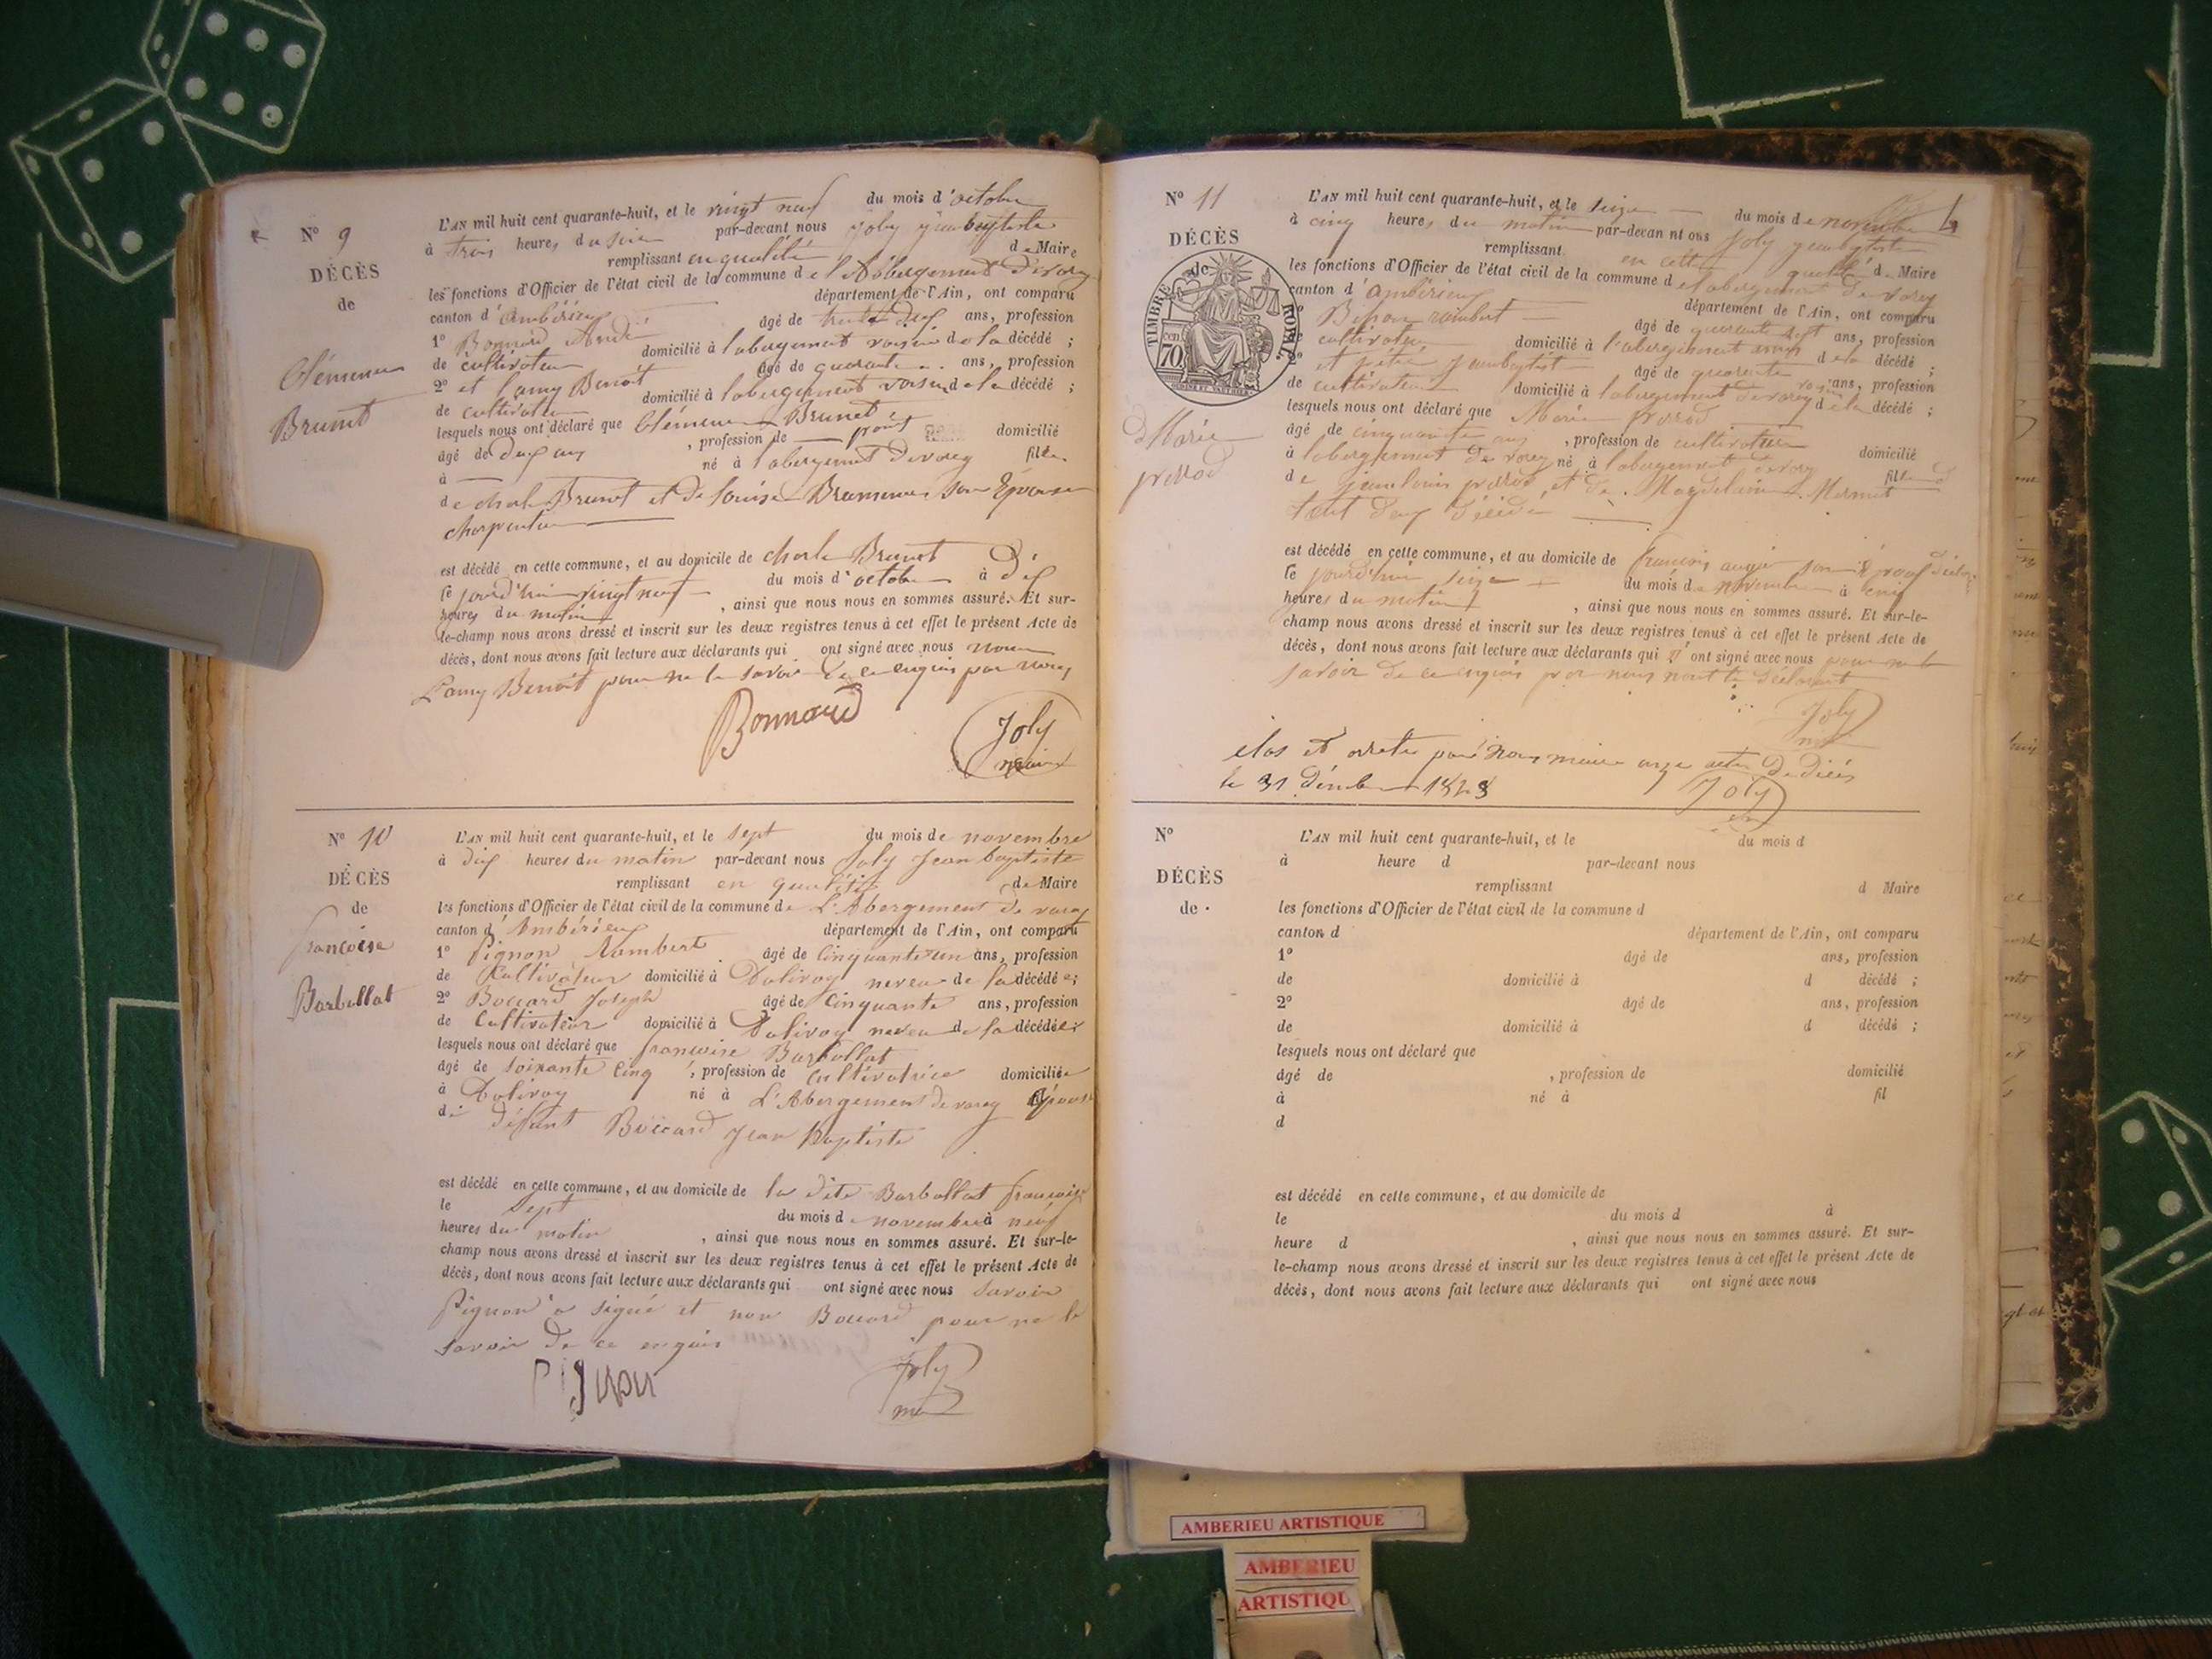 N° 9
DÉCÈS
de
Clémence
Brunet
L'AN mil huit cent quarante-huit, et le vingt neuf du mois d'octobre
à trois heures du soir par-devant nous Joly jeanbaptiste
remplissant en qualité de Maire
les fonctions d'Officier de l'état civil de la commune de l'Abbergement devarey
canton d'ambérieu département de l'Ain, ont comparu
1° Bonnard André âgé de ans, profession
de cultivateur domicilié à labergement voisin de la décédé ;
2° et Lamy Benoit âgé de quarante ans, profession
de cultivateur domicilié à labergement voisin de la décédé ;
lesquels nous ont déclaré que Clémence Brunet
âgé de dix ans , profession de point domicilié
à né à labergement devarey fille
de charle Brunet et de Louise son Epouse
charpentier
est décédé en cette commune, et au domicile de charle Brunet
le jourd'hui vingt neuf du mois d'octobre à dix
heures du matin , ainsi que nous nous en sommes assuré. Et sur-
le-champ nous avons dressé et inscrit sur les deux registres tenus à cet effet le présent Acte de
décès, dont nous avons fait lecture aux déclarants qui ont signé avec nous non
Lamy Benoit pour ne le savoir de ce enquis par nous
Bonnard
Joly
maire
N° 10
DÉCÈS
de
françoise
Barbollat
L'AN mil huit cent quarante-huit, et le sept du mois de novembre
à dix heures du matin par-devant nous Joly Jean baptiste
remplissant en qualité de Maire
les fonctions d'Officier de l'état civil de la commune de L'Abergement de varey
canton d'Ambérieu département de l'Ain, ont comparu
1° Pignon Rambert âgé de Cinquante un ans, profession
de Cultivateur domicilié à Dalivoy neveu de la décédée ;
2° Boccard Joseph âgé de Cinquante ans, profession
de Cultivateur domicilié à Dalivoy neveu de la décédée ;
lesquels nous ont déclaré que françoise Barbollat
âgé de soixante Cinq , profession de cultivatrice domiciliée
à Dalivoy né à L'Abergement de varey Epouse
de défunt Boccard Jean Baptiste
est décédé en cette commune, et au domicile de la dite Barbollat françoise
le sept du mois de novembre à neuf
heures du matin , ainsi que nous nous en sommes assuré. Et sur-le-
champ nous avons dressé et inscrit sur les deux registres tenus à cet effet le présent Acte de
décès, dont nous avons fait lecture aux déclarants qui ont signé avec nous savoir
Pignon a signé et non Boccard pour ne le
savoir de ce enquis
Pignon
Joly
N° 11
DÉCÈS
de
TIMBRE ROYAL
70
Marie
perrod
L'AN mil huit cent quarante-huit, et le seize du mois de novembre 4
à cinq heures du matin par-devant nous Joly jeanbaptiste
remplissant en cette qualité de Maire
les fonctions d'Officier de l'état civil de la commune de labergement de varey
canton d'ambérieu département de l'Ain, ont comparu
rambert âgé de quarante sept ans, profession
de cultivateur domicilié à l'abergement voisin de la décédé ;
2° et jeanbaptiste âgé de quarante ans, profession
de cultivateur domicilié à labergement devarey de la décédé ;
lesquels nous ont déclaré que Marie perrod
âgé de cinquante ans , profession de domicilié
à labergement de varey né à labergement devarey fille d
de jeanlouis perrod et de Magdelaine Mermet
tout deux
est décédé en cette commune, et au domicile de françois
le jourd'hui seize du mois de novembre à cinq
heures du matin , ainsi que nous nous en sommes assuré. Et sur-le-
champ nous avons dressé et inscrit sur les deux registres tenus à cet effet le présent Acte de
décès, dont nous avons fait lecture aux déclarants qui n'ont signé avec nous pour ne le
savoir de ce enquis par nous
Joly
clos et arreté par nous maire onze actes de décés
le 31 1848
Joly
N°
DÉCÈS
de
L'AN mil huit cent quarante-huit, et le du mois d
à heure d par-devant nous
remplissant d Maire
les fonctions d'Officier de l'état civil de la commune d
canton d département de l'Ain, ont comparu
1° âgé de ans, profession
de domicilié à d décédé ;
2° âgé de ans, profession
de domicilié à d décédé ;
lesquels nous ont déclaré que
âgé de , profession de domicilié
à né à fil
d
est décédé en cette commune, et au domicile de
le du mois d à
heure d , ainsi que nous nous en sommes assuré. Et sur-
le-champ nous avons dressé et inscrit sur les deux registres tenus à cet effet le présent Acte de
décès, dont nous avons fait lecture aux déclarants qui ont signé avec nous
AMBERIEU ARTISTIQUE
AMBERIEU
ARTISTIQU